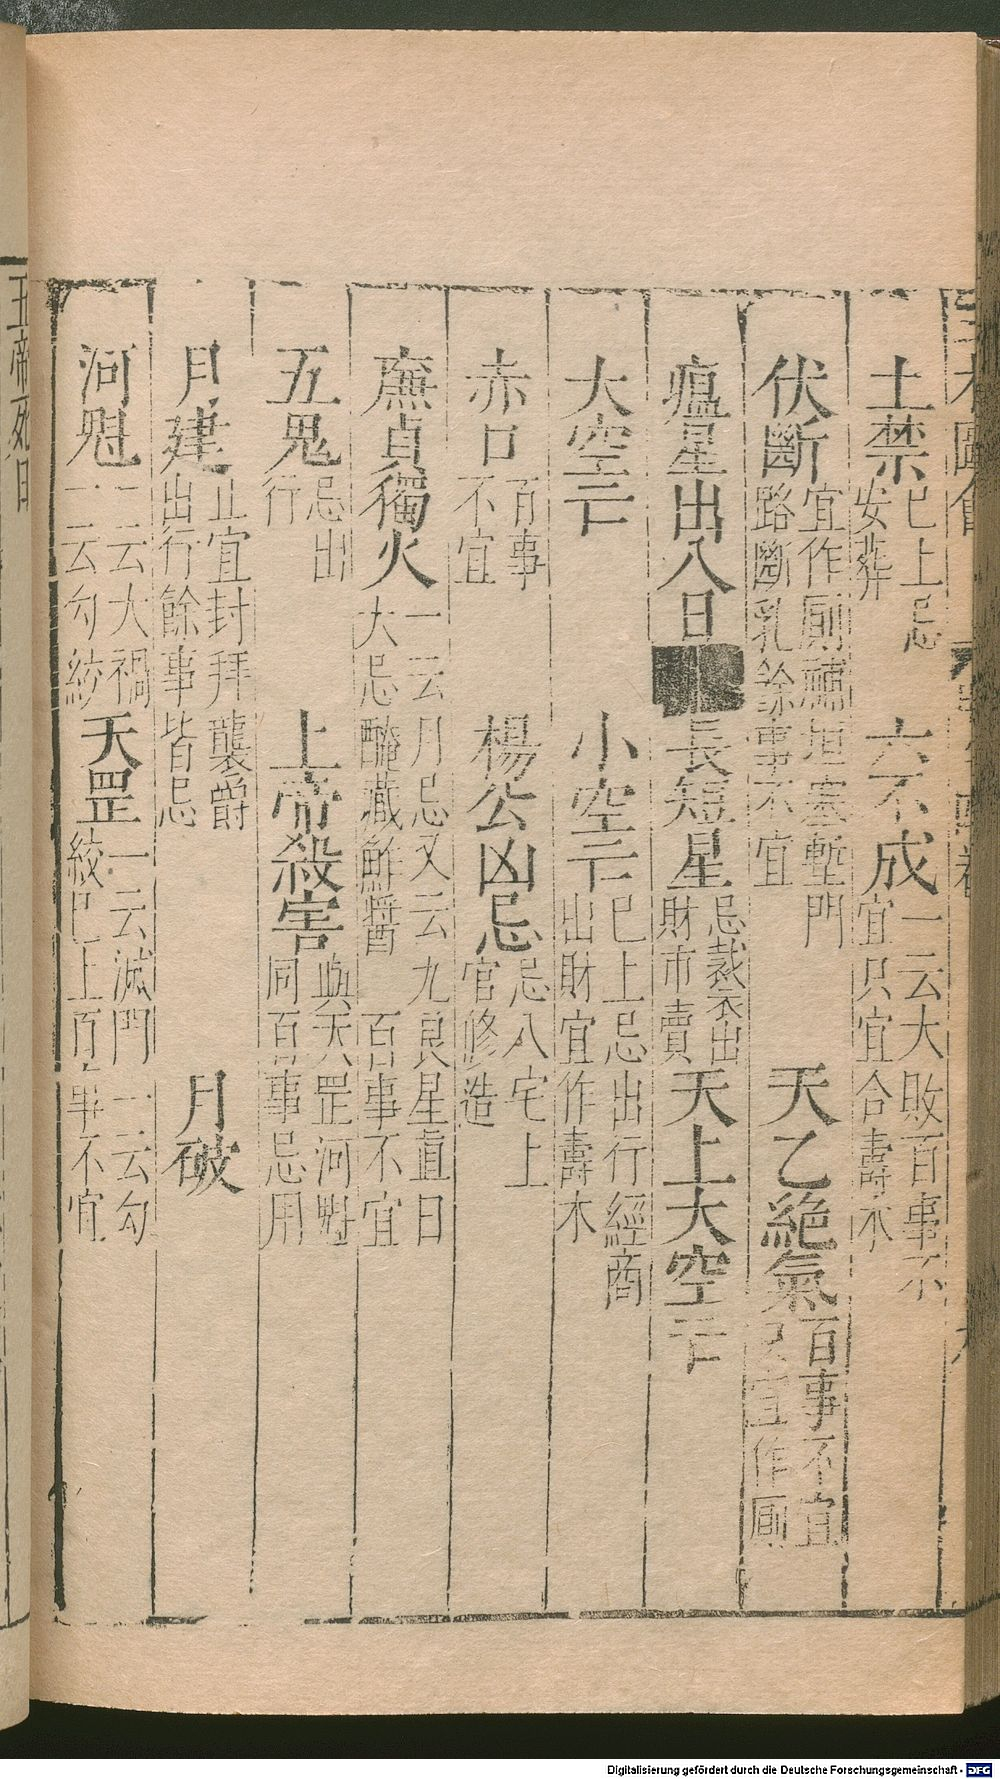 土禁巳上忌安葬 六不成一云大敗百事不宜只宜合壽木
伏斷宜作厠 塞塹門路斷乳餘事不宜 天乙絶氣百事不宜只宜作厠
瘟星出入日 長短星忌裁衣出財市賣 天上大空亡
大空亡 小空亡巳上忌出行經商出財宜作壽木
赤口百事不宜 楊公凶忌忌入宅上官修造
廉貞獨火一云月忌又云九良星直日大忌醃藏鮓醬百事不宜
五鬼忌出行 上帝殺害與天罡河魁同百事忌用
月建止宜封拜襲爵出行餘事皆忌 月破
河魁一云大禍一云勾絞 天罡一云滅門一云勾絞巳上百事不宜
五帝死日
Digitalisierung gefördert durch die Deutsche Forschungsgemeinschaft - DFG